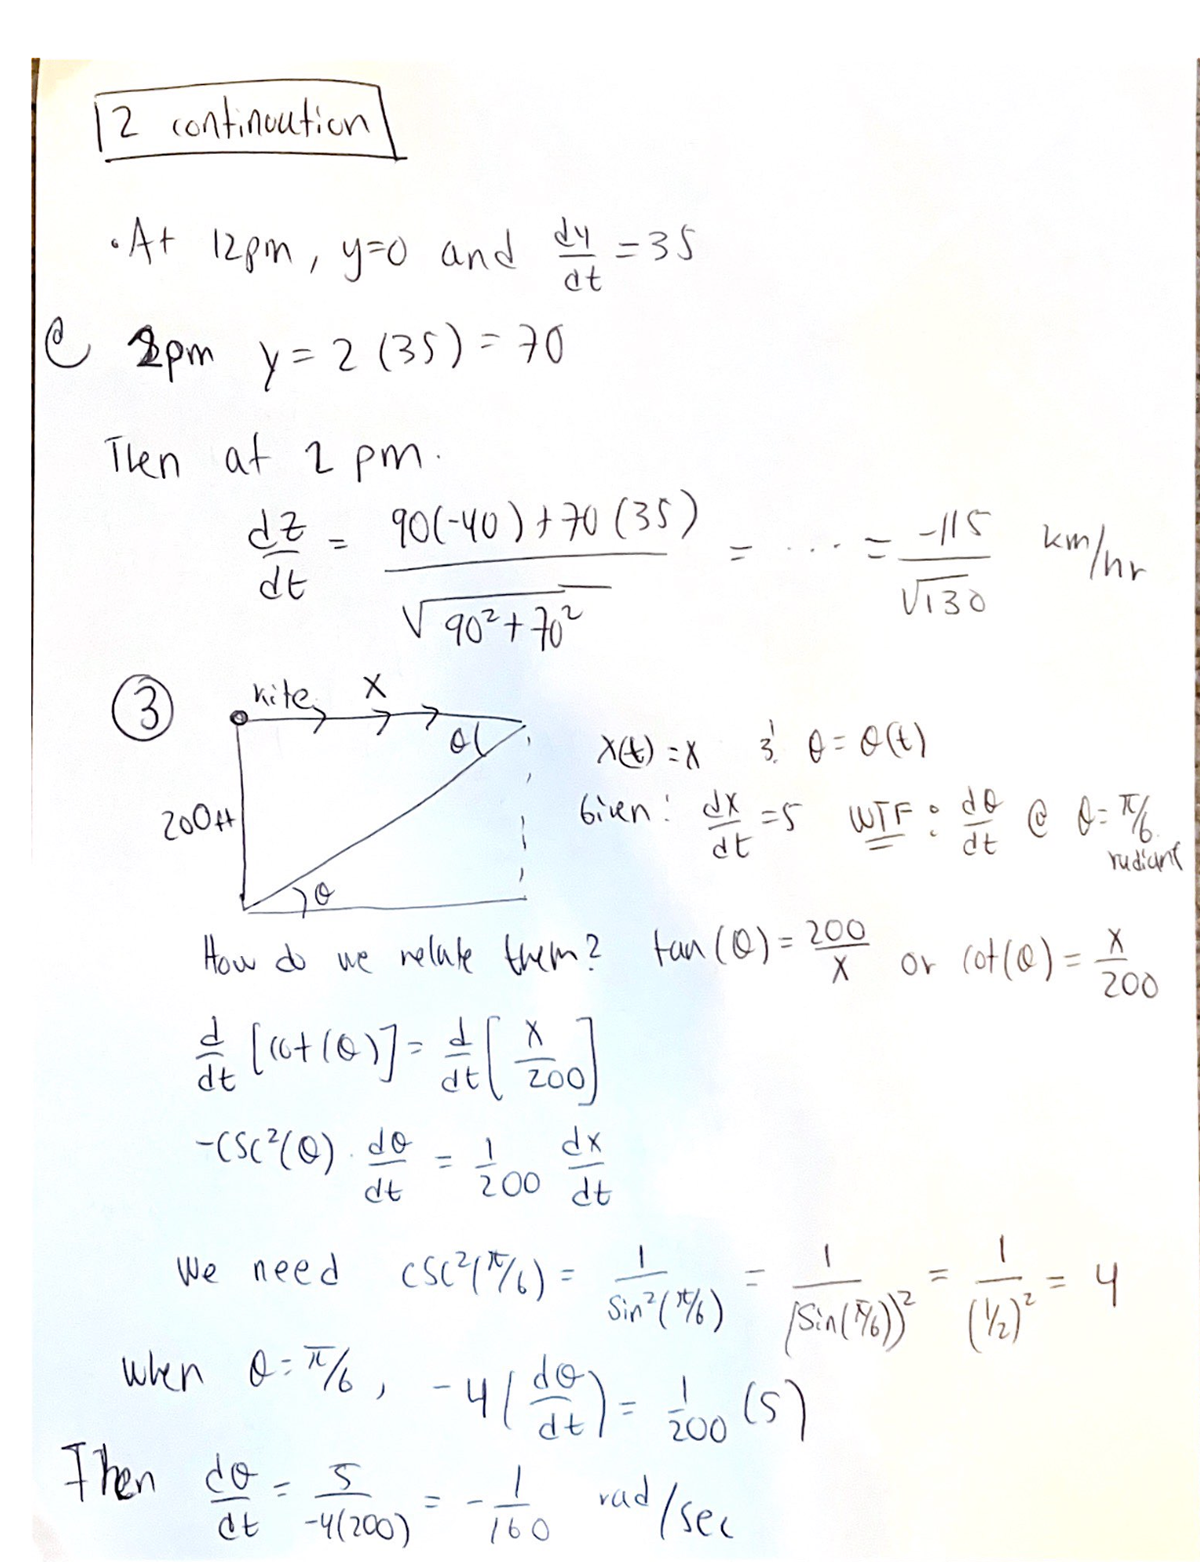 2 continuation
• At 12pm, y=0 and dy/dt = 35
@ 2pm y = 2 (35) = 70
Then at 2 pm.
dz/dt = (90(-40) + 70 (35))/√(90² + 70²) = ... = -115/√130 km/hr
③ kite x
θ
200ft
θ
x(t) = x & θ = θ(t)
Given: dx/dt = 5 WTF: dθ/dt @ θ = π/6
radians
How do we relate them? tan(θ) = 200/x or cot(θ) = x/200
d/dt [cot(θ)] = d/dt [x/200]
-csc²(θ) · dθ/dt = 1/200 dx/dt
We need csc²(π/6) = 1/sin²(π/6) = 1/(sin(π/6))² = 1/(1/2)² = 4
when θ = π/6, -4(dθ/dt) = 1/200 (5)
Then dθ/dt = 5/-4(200) = -1/160 rad/sec